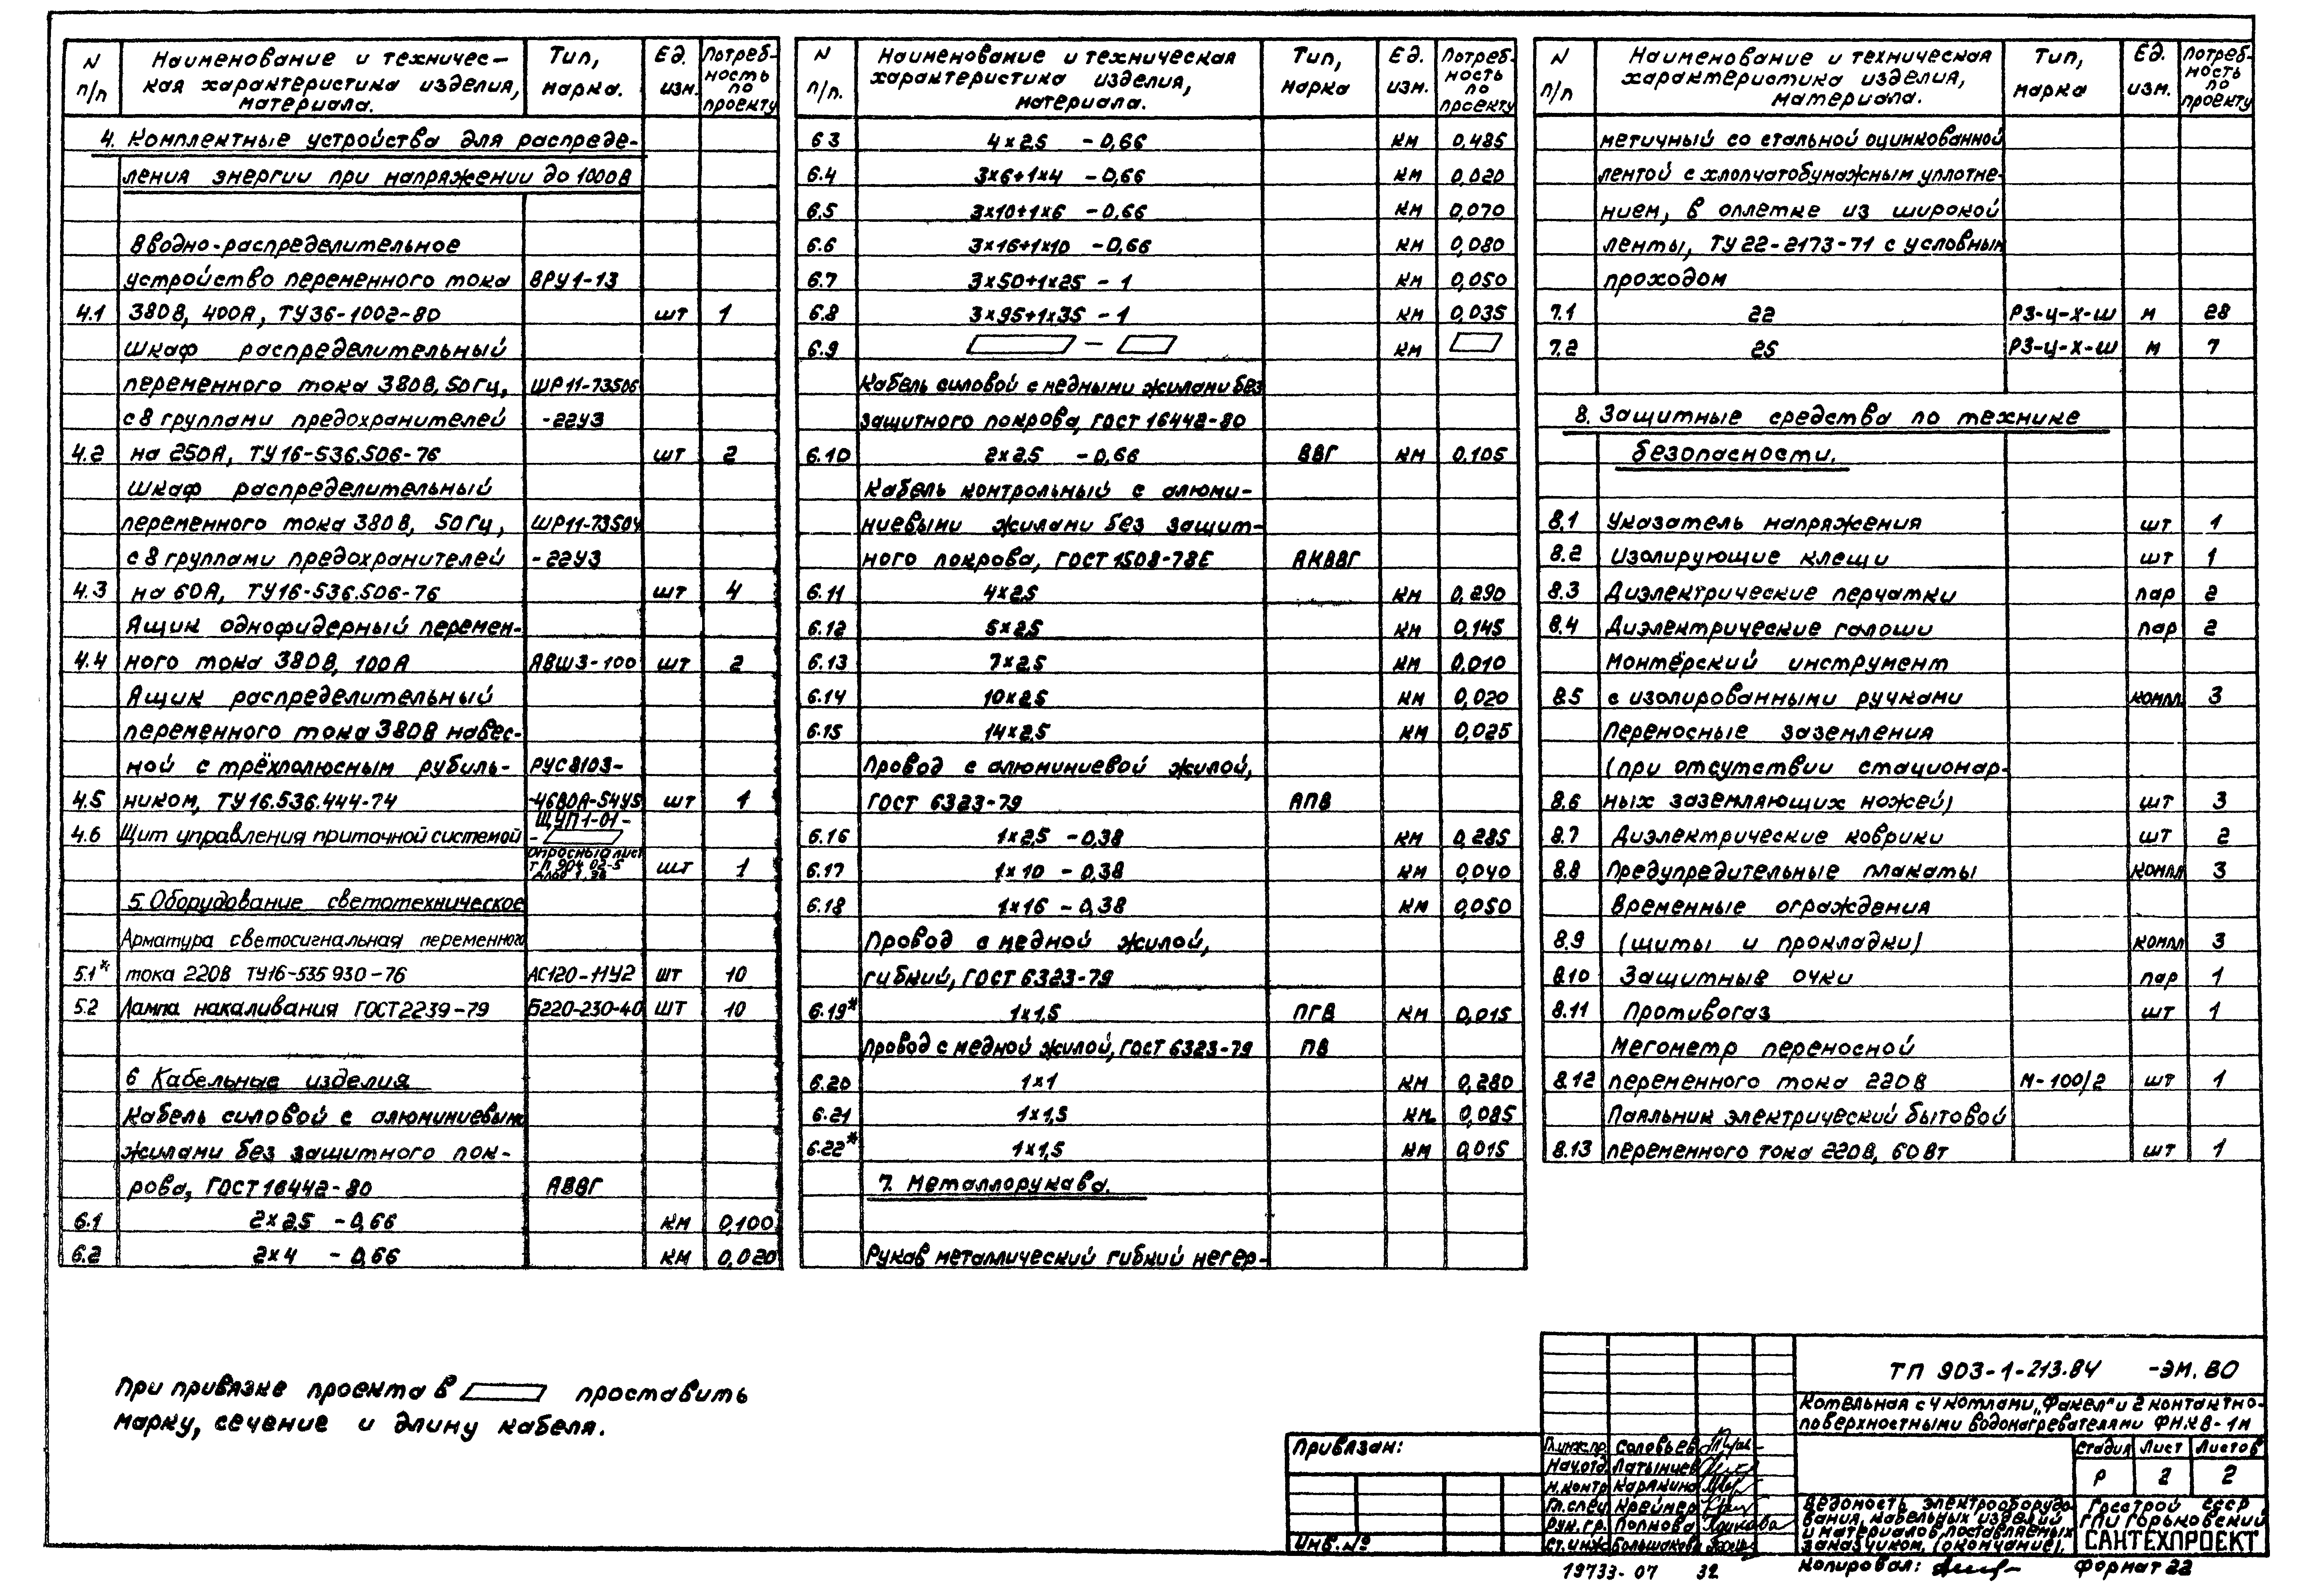 N п/п Наименование и техничес- Тип, Ед. Потреб-
кая характеристика изделия, марка. изм. ность по
материала. проекту
4. Комплектные устройства для распреде-
ления энергии при напряжении до 1000В
Вводно-распределительное
устройство переменного тока ВРУ1-13
4.1 380В, 400А, ТУ36-1002-80 шт 1
Шкаф распределительный
переменного тока 380В, 50Гц, ШР11-73506
с 8 группами предохранителей -22У3
4.2 на 250А, ТУ16-536.506-76 шт 2
Шкаф распределительный
переменного тока 380В, 50Гц, ШР11-73504
с 8 группами предохранителей -22У3
4.3 на 60А, ТУ16-536.506-76 шт 4
Ящик однофидерный перемен-
4.4 ного тока 380В, 100А ЯВШ3-100 шт 2
Ящик распределительный
переменного тока 380В навес-
ной с трёхполюсным рубиль- РУС8103-
4.5 ником, ТУ16.536.444-74 -46В0А-54У5 шт 1
ЩУП1-01-
4.6 Щит управления приточной системой -
опросный лист
ТП 904 02-5 шт 1
5. Оборудование светотехническое
Арматура светосигнальная переменного
5.1* тока 220В ТУ16-535 930-76 АС120-11У2 шт 10
5.2 Лампа накаливания ГОСТ2239-79 Б220-230-40 шт 10
6 Кабельные изделия
Кабель силовой с алюминиевыми
жилами без защитного пок-
рова, ГОСТ16442-80 АВВГ
6.1 2×2,5 -0,66 км 0,100
6.2 2×4 -0,66 км 0,020
N п/п. Наименование и техническая Тип, Ед. Потреб-
характеристика изделия, марка изм. ность по
материала. проекту
6 3 4×2,5 -0,66 км 0,485
6.4 3×6+1×4 -0,66 км 0,020
6.5 3×10+1×6 -0,66 км 0,070
6.6 3×16+1×10 -0,66 км 0,080
6.7 3×50+1×25 - 1 км 0,050
6.8 3×95+1×35 - 1 км 0,035
6.9 - км
Кабель силовой с медными жилами без
защитного покрова, ГОСТ 16442-80
6.10 2×2,5 -0,66 ВВГ км 0,105
Кабель контрольный с алюми-
ниевыми жилами без защит-
ного покрова, ГОСТ 1508-78Е АКВВГ
6.11 4×2,5 км 0,290
6.12 5×2,5 км 0,145
6.13 7×2,5 км 0,010
6.14 10×2,5 км 0,020
6.15 14×2,5 км 0,025
Провод с алюминиевой жилой,
ГОСТ 6323-79 АПВ
6.16 1×2,5 -0,38 км 0,285
6.17 1×10 -0,38 км 0,040
6.18 1×16 -0,38 км 0,050
Провод с медной жилой,
гибкий, ГОСТ 6323-79
6.19* 1×1,5 ПГВ км 0,015
Провод с медной жилой, ГОСТ 6323-79 ПВ
6.20 1×1 км 0,280
6.21 1×1,5 км 0,085
6.22* 1×1,5 км 0,015
7. Металлорукава.
Рукав металлический гибкий негер-
N п/п Наименование и техническая Тип, Ед. Потреб-
характеристика изделия, марка изм. ность по
материала. проекту
метичный со стальной оцинкованной
лентой с хлопчатобумажным уплотне-
нием, в оплетке из широкой
ленты, ТУ 22-2173-71 с условным
проходом
7.1 22 РЗ-Ц-Х-Ш м 28
7.2 25 РЗ-Ц-Х-Ш м 7
8. Защитные средства по технике
безопасности.
8.1 Указатель напряжения шт 1
8.2 Изолирующие клещи шт 1
8.3 Диэлектрические перчатки пар 2
8.4 Диэлектрические галоши пар 2
Монтёрский инструмент
8.5 с изолированными ручками компл 3
Переносные заземления
(при отсутствии стационар-
8.6 ных заземляющих ножей) шт 3
8.7 Диэлектрические коврики шт 2
8.8 Предупредительные плакаты компл 3
Временные ограждения
8.9 (щиты и прокладки) компл 3
8.10 Защитные очки пар 1
8.11 Противогаз шт 1
Мегометр переносной
8.12 переменного тока 220В М-100/2 шт 1
Паяльник электрический бытовой
8.13 переменного тока 220В, 60Вт шт 1
При привязке проекта в проставить
марку, сечение и длину кабеля.
Привязан:
Инв.№
ТП 903-1-213.84 -ЭМ.ВО
Котельная с 4 котлами „Факел" и 2 контактно-
поверхностными водонагревателями ФНКВ-1М
Гл.инж.пр. Соловьев
Нач.отд. Латынцев
Н.контр Карякина
Гл.спец Креймер
Рук.гр. Попкова
Ст.инж Большакова
Стадия Лист Листов
Р 2 2
Ведомость электрооборудо-
вания, кабельных изделий
и материалов, поставляемых
заказчиком. (окончание).
Госстрой СССР
ГПИ Горьковский
САНТЕХПРОЕКТ
19733-07 32
Копировал: Формат 22